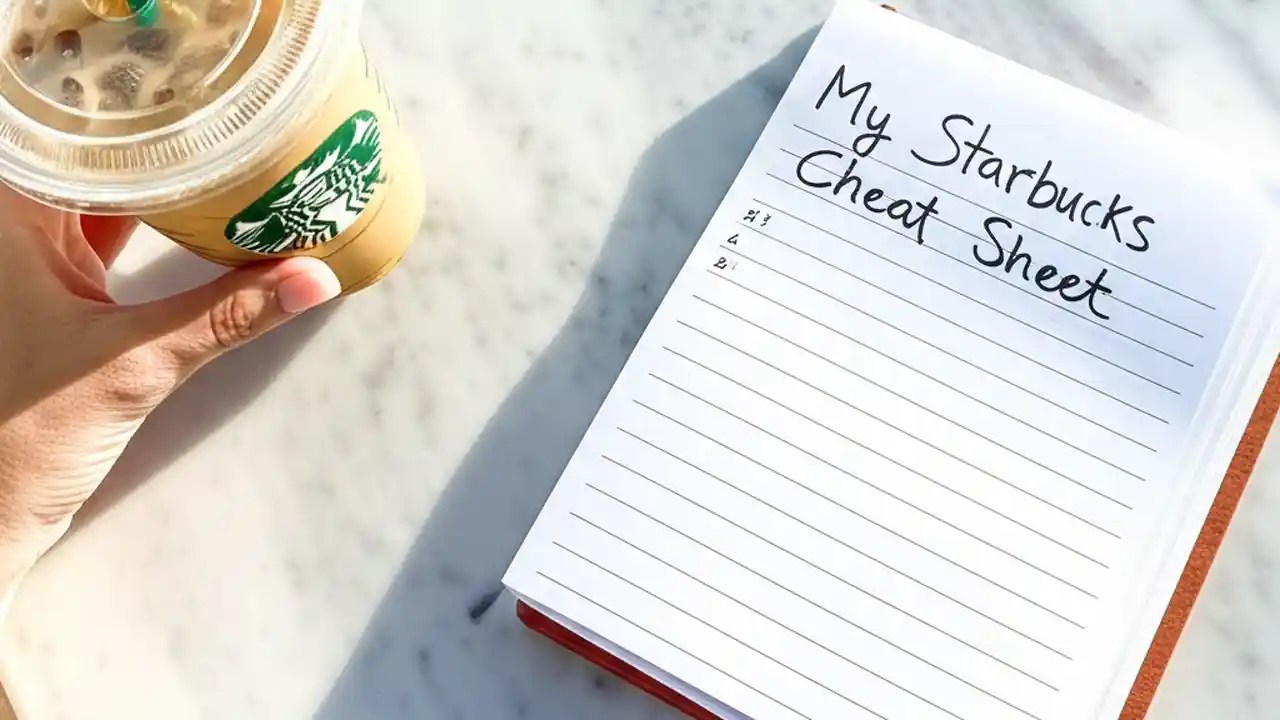 My Starbucks
Cheat Sheet